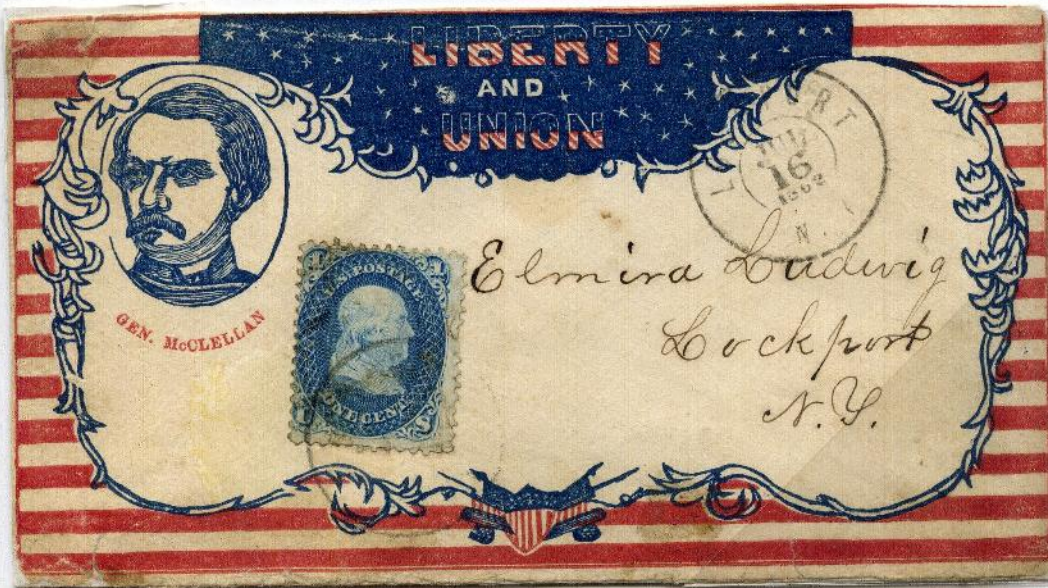 LIBERTY
AND
UNION
GEN. McCLELLAN
U.S. POSTAGE
ONE CENT
16
N.
Elmira Ludwig
Lockport
N.Y.